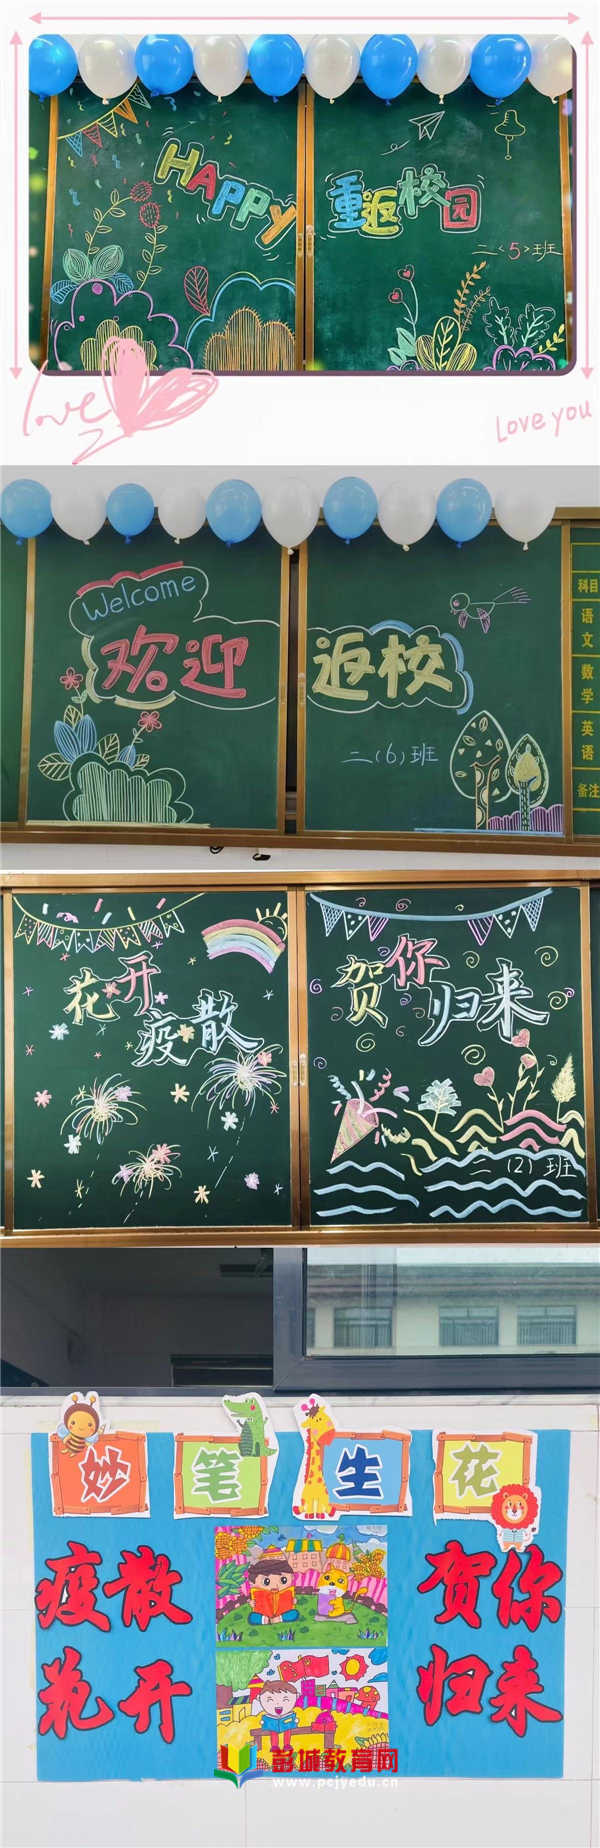 HAPPY 重返校园
二<5>班
Love
Love you
Welcome
欢迎返校
二(6)班
科目
语文
数学
英语
备注
花开
疫散
贺你
归来
二(2)班
妙笔生花
疫散
花开
贺你
归来
彭城教育网
www.pcjyedu.cn